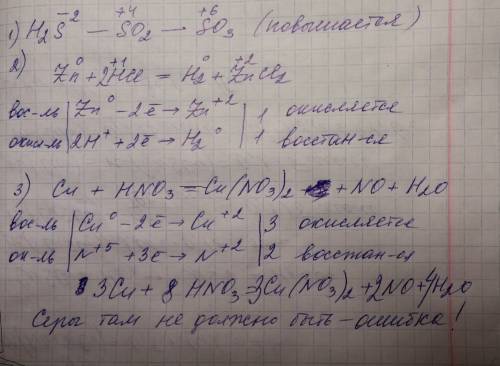 1) H₂S⁻² — S⁺⁴O₂ — S⁺⁶O₃ (повышается)
2) Zn⁰ + 2H⁺¹Cl = H₂⁰ + Zn⁺²Cl₂
вос-ль | Zn⁰ – 2ē → Zn⁺² | 1 окисляется
окис-ль | 2H⁺ + 2ē → H₂⁰ | 1 восстан-ся
3) Cu + HNO₃ = Cu(NO₃)₂ + NO + H₂O
вос-ль | Cu⁰ – 2ē → Cu⁺² | 3 окисляется
ок-ль | N⁺⁵ + 3ē → N⁺² | 2 восстан-ся
3Cu + 8 HNO₃ = 3Cu(NO₃)₂ + 2NO + 4H₂O
Серы там не должно быть – ошибка!